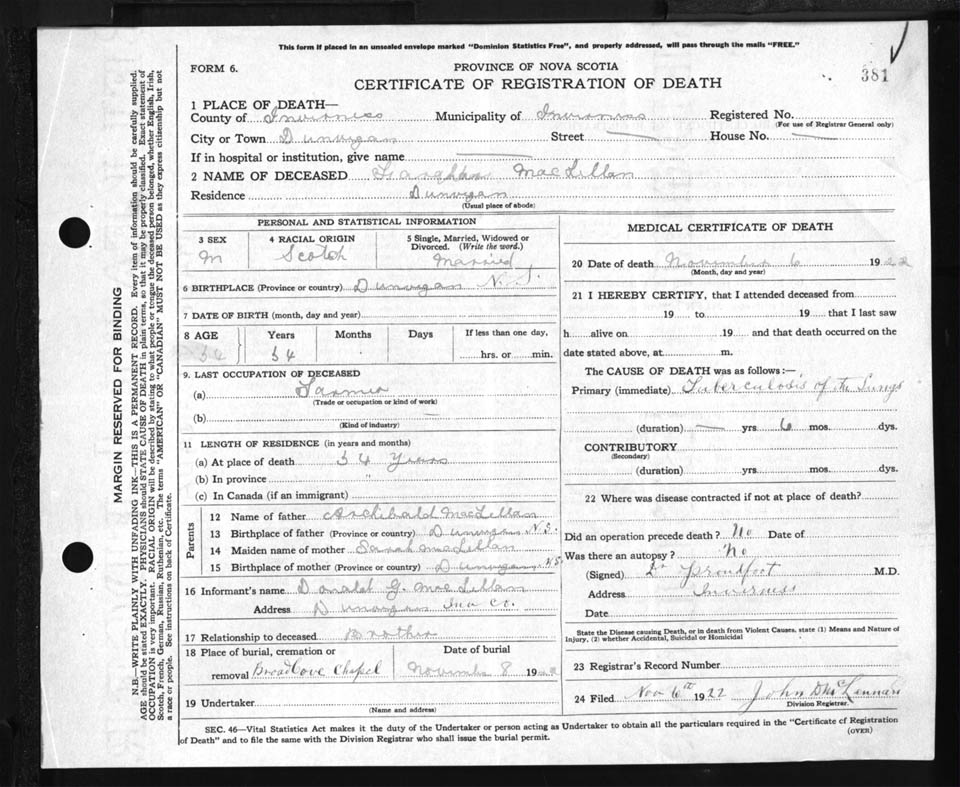 This form if placed in an unsealed envelope marked "Dominion Statistics Free", and properly addressed, will pass through the mails "FREE."
FORM 6.
PROVINCE OF NOVA SCOTIA
381
CERTIFICATE OF REGISTRATION OF DEATH
1 PLACE OF DEATH—
County of Inverness Municipality of Inverness Registered No.
(For use of Registrar General only)
City or Town Dunvegan Street House No.
If in hospital or institution, give name
2 NAME OF DECEASED MacLellan
Residence Dunvegan
(Usual place of abode)
PERSONAL AND STATISTICAL INFORMATION
3 SEX 4 RACIAL ORIGIN 5 Single, Married, Widowed or Divorced. (Write the word.)
M Scotch Married
6 BIRTHPLACE (Province or country) Dunvegan N.S.
7 DATE OF BIRTH (month, day and year)
8 AGE Years Months Days If less than one day,
54 54 hrs. or min.
9. LAST OCCUPATION OF DECEASED
(a) Farmer
(Trade or occupation or kind of work)
(b) —
(Kind of industry)
11 LENGTH OF RESIDENCE (in years and months)
(a) At place of death 54 Years
(b) In province "
(c) In Canada (if an immigrant)
Parents
12 Name of father Archibald MacLellan
13 Birthplace of father (Province or country) Dunvegan N.S.
14 Maiden name of mother Sarah MacLellan
15 Birthplace of mother (Province or country) Dunvegan N.S.
16 Informant's name Donald G. MacLellan
Address Dunvegan Inv Co.
17 Relationship to deceased Brother
18 Place of burial, cremation or removal Broad Cove Chapel Date of burial November 8 1922
19 Undertaker
(Name and address)
MEDICAL CERTIFICATE OF DEATH
20 Date of death November 6 1922
(Month, day and year)
21 I HEREBY CERTIFY, that I attended deceased from
19 to 19 that I last saw
h alive on 19 and that death occurred on the
date stated above, at m.
The CAUSE OF DEATH was as follows:—
Primary (immediate) Tuberculosis of the Lungs
(duration) — yrs 6 mos. dys.
CONTRIBUTORY
(Secondary)
(duration) yrs. mos. dys.
22 Where was disease contracted if not at place of death?
Did an operation precede death? No Date of
Was there an autopsy? No
(Signed) Dr Proudfoot M.D.
Address Inverness
Date
State the Disease causing Death, or in death from Violent Causes, state (1) Means and Nature of
Injury, (2) whether Accidental, Suicidal or Homicidal
23 Registrar's Record Number
24 Filed Nov 6th 1922 John D McLennan
Division Registrar.
SEC. 46—Vital Statistics Act makes it the duty of the Undertaker or person acting as Undertaker to obtain all the particulars required in the "Certificate of Registration
of Death" and to file the same with the Division Registrar who shall issue the burial permit.
(OVER)
MARGIN RESERVED FOR BINDING
N.B.—WRITE PLAINLY WITH UNFADING INK—THIS IS A PERMANENT RECORD. Every item of information should be carefully supplied.
AGE should be stated EXACTLY. PHYSICIANS should STATE CAUSE OF DEATH in plain terms, so that it may be properly classified. Exact statement of
OCCUPATION is very important. RACIAL ORIGIN will be described by stating to what people or tongue the deceased person belonged, whether English, Irish,
Scotch, French, German, Russian, Ruthenian, etc. The terms "AMERICAN" OR "CANADIAN" MUST NOT BE USED as they express citizenship but not
a race or people. See instructions on back of Certificate.